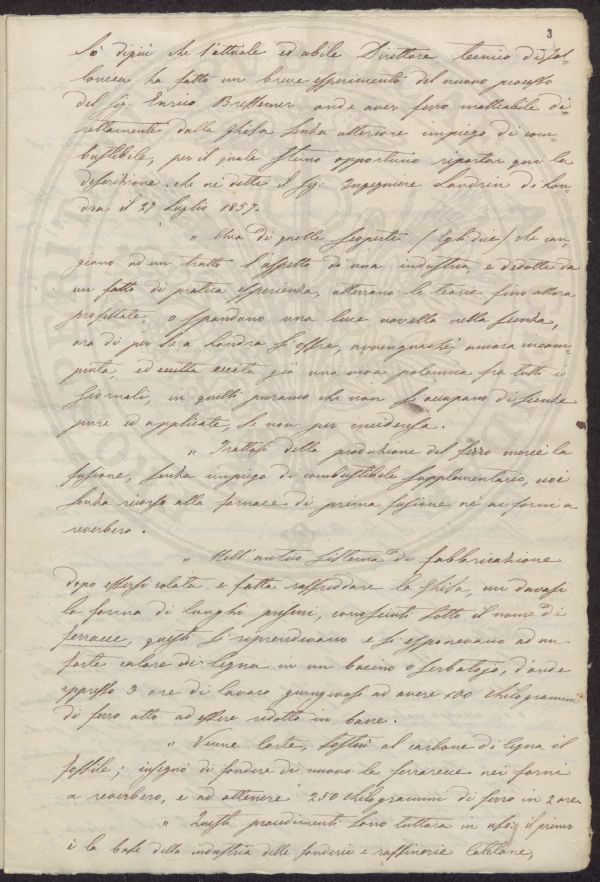 3
So dippiù che l'attuale ed abile Direttore tecnico di Fol-
lonica ha fatto un breve esperimento del nuovo processo
del Sig. Enrico Bessemer onde aver ferro malleabile di-
rettamente dalla Ghisa senza ulteriore impiego di com-
bustibile, per il quale stimo opportuno riportar qui la
descrizione che ne dette il Sig. Ingegnere Landrin di Lon-
dra il 27 Luglio 1857.
" Una di quelle scoperte (Egli dice) che can-
giano ad un tratto l'aspetto di una industria, e dedotte da
un fatto di pratica esperienza, atterrano le teorie fino allora
professate, o spandono una luce novella nella scienza,
ora di per se a Londra si offre, avvegnachè ancora incom-
pinta, ed eccita già una viva polemica fra tutti i
Giornali, in quelli puranco che non si occupano di scienze
pure ed applicate, se non per incidenza.
" Trattasi della produzione del ferro mercè la
fusione, senza impiego di combustibile supplementario, cioè
senza ricorso alla fornace di prima fusione nè ai forni a
reverbero.
" Nell'antico sistema di fabbricazione
dopo essersi colata e fatta raffreddare la Ghisa, un davasi
la forma di lunghi prismi, conosciuti sotto il nome di
ferracce, questi si riprendevano e si esponevano ad un
forte calore di legna in un bacino o serbatojo, d'onde
appresso 3 ore di lavoro giungevasi ad avere 100 chilogrammi
di ferro atto ad essere ridotto in barre.
" Venne Corte, sostituì al carbone di legna il
fossile; insegnò di fondere di nuovo le ferracce nei forni
a reverbero, e ad ottenere 250 chilogrammi di ferro in 2 ore.
" Questi procedimenti sono tuttora in uso: il primo
è la base della industria delle fonderie e raffinerie Catalane,